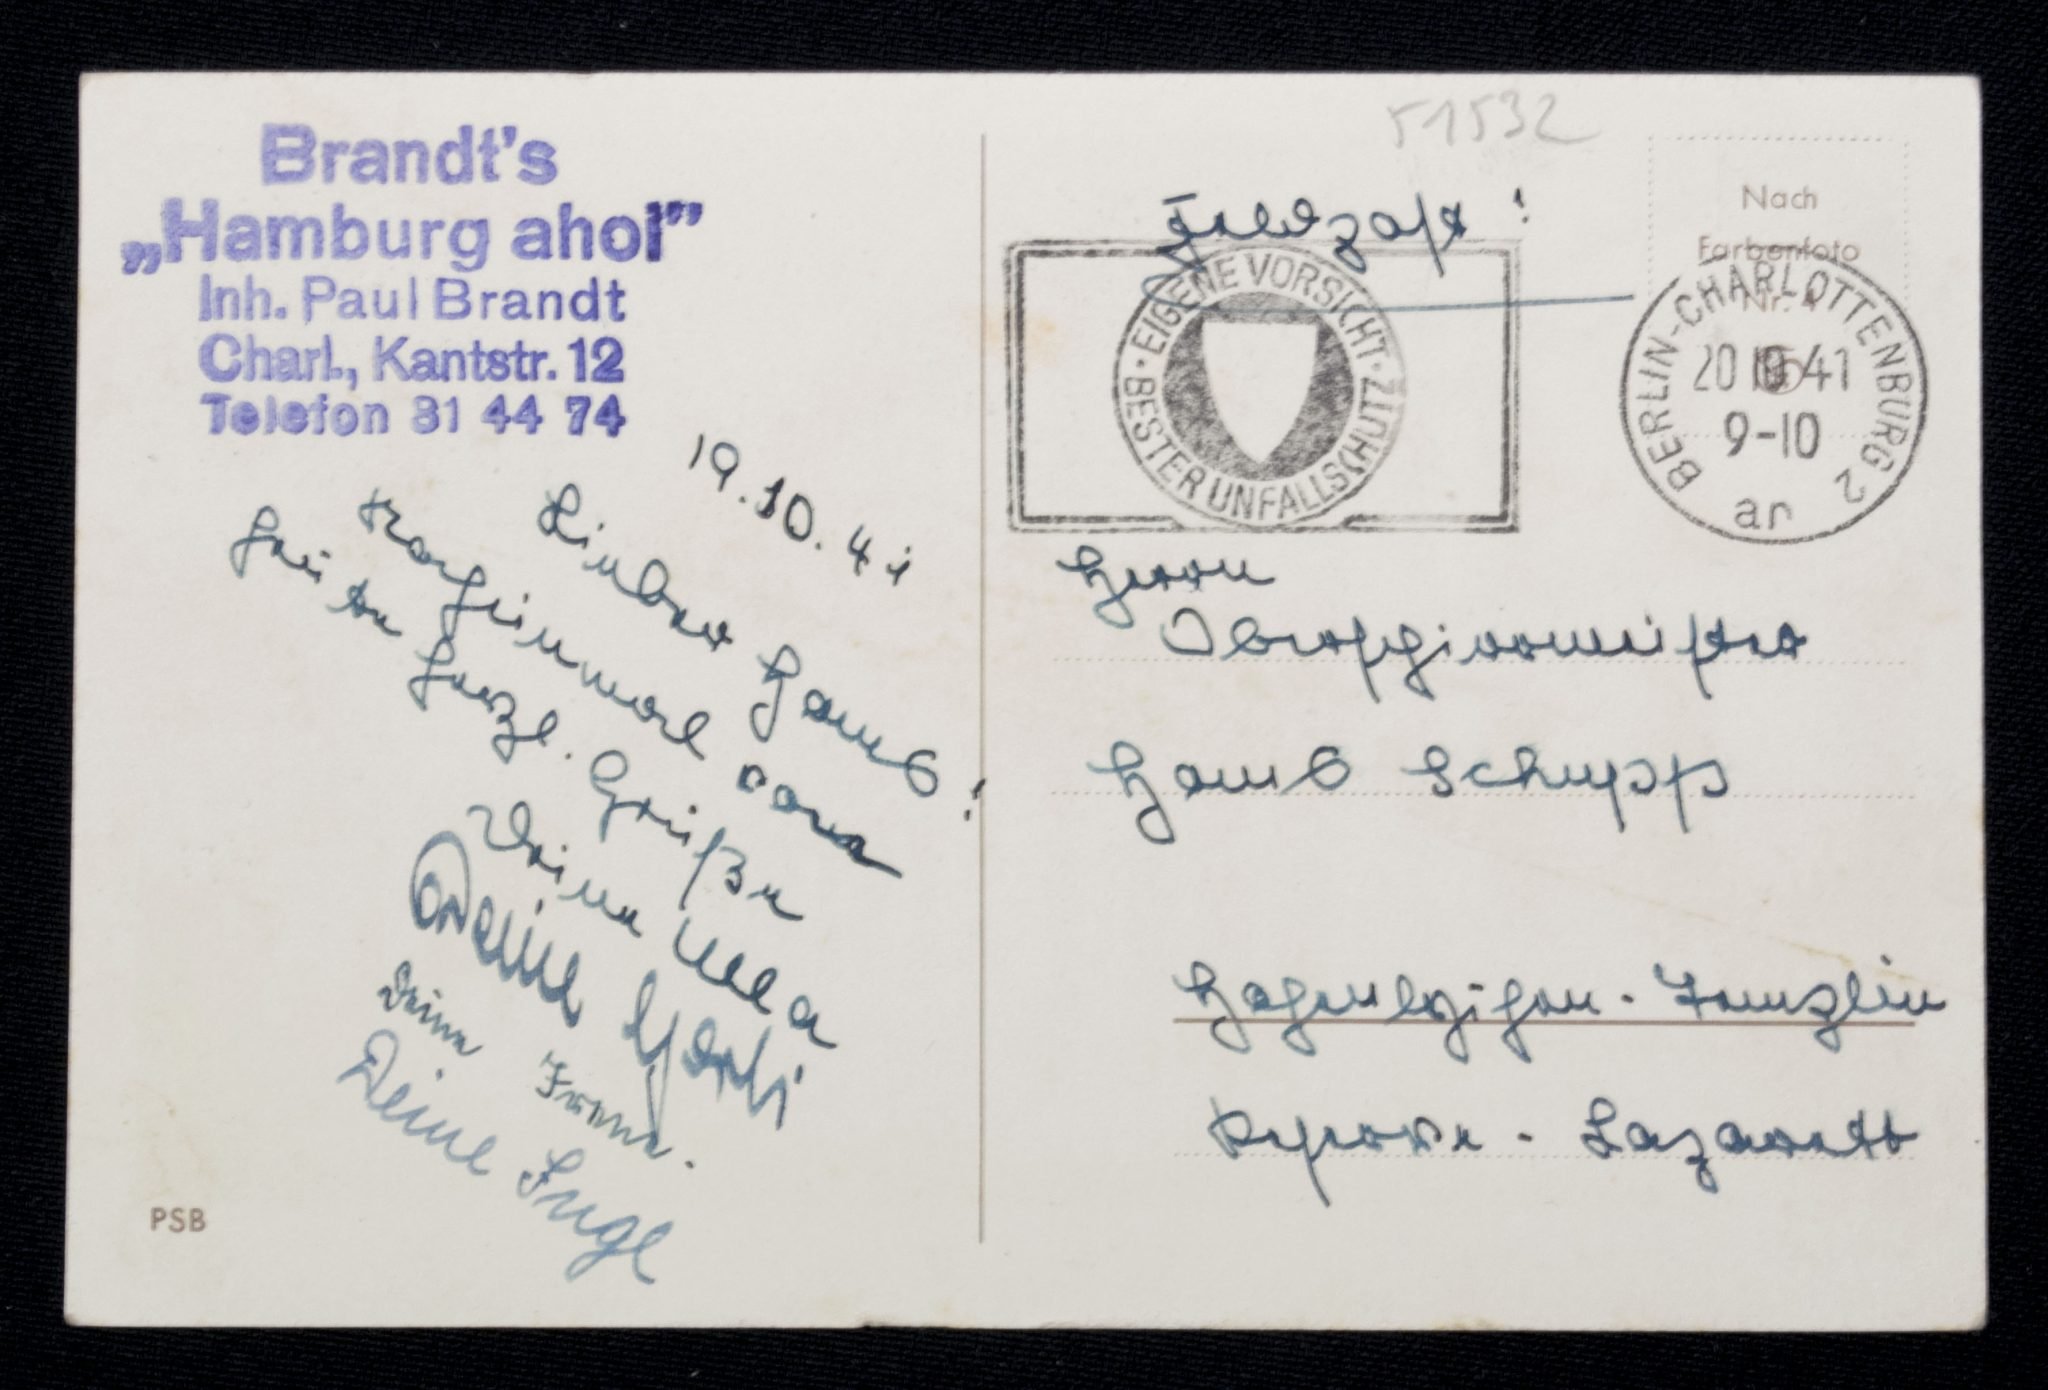 Brandt's
„Hamburg ahoi”
Inh. Paul Brandt
Charl., Kantstr. 12
Telefon 31 44 74
19.10.41
Lieber Hans!
Noch einmal
heute herzl. Grüße
Deine Ulla
Deine
Deine
Deine Inge
PSB
51532
Feldpost!
Nach
Farbenfoto
Nr.
EIGENE VORSICHT · BESTER UNFALLSCHUTZ ·
BERLIN-CHARLOTTENBURG 2
20 10 41
9-10
ar
Herrn
Oberschirrmeister
Hans Schupp
Reserve-Lazarett